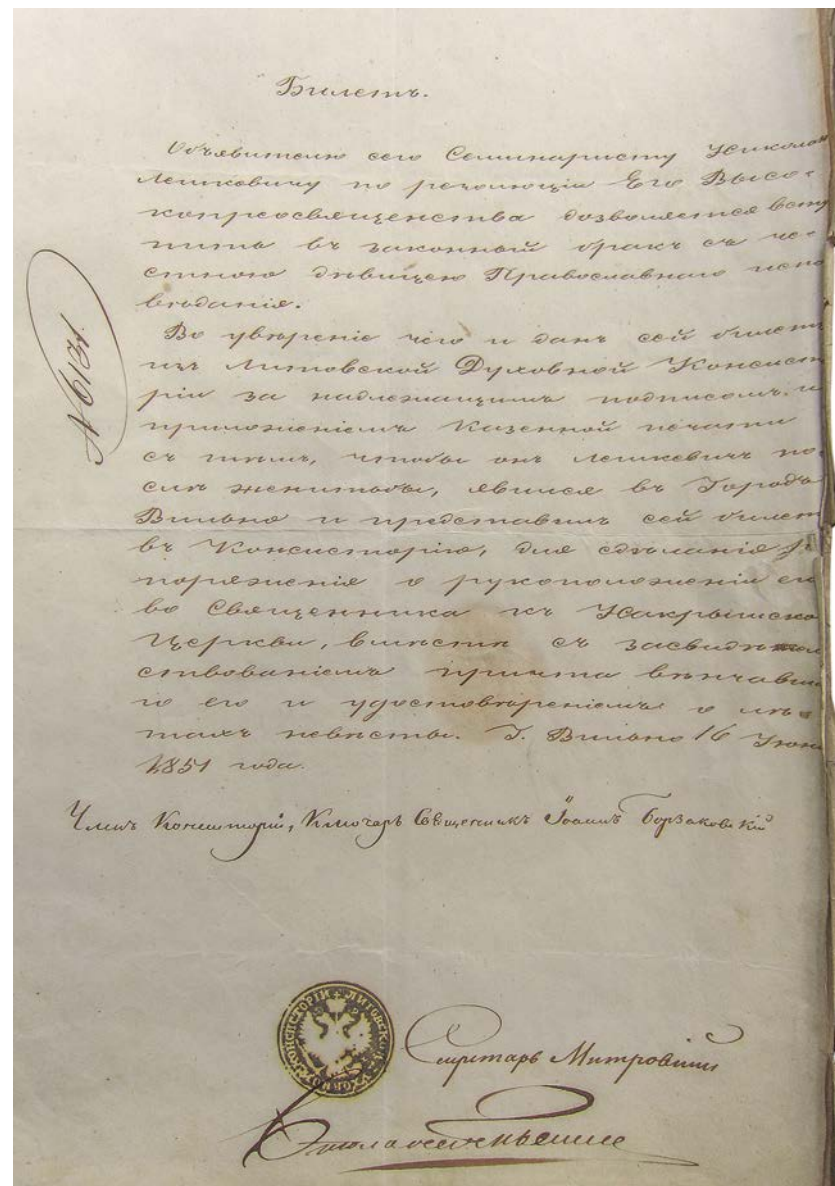 Билетъ.
Объявителю сего Семинаристу Николаю
Лешкевичу по резолюціи Его Высо-
копреосвященства дозволяется всту
пить въ законный бракъ съ че-
стною дѣвицею Православнаго испо
вѣданія.
Во увѣреніе чего и данъ сей билетъ
изъ Литовской Духовной Консисто
ріи за надлежащимъ подписомъ и
приложеніемъ Казенной печати
съ тѣмъ, чтобы онъ Лешкевичъ по-
слѣ женитьбы, явился въ Городъ
Вильно и представилъ сей билетъ
въ Консисторію, для сдѣланія
поряженія о рукоположеніи его
во Священника къ Накрышско
Церкви, вмѣстѣ съ засвидѣтель
ствованіемъ причта вѣнчавша
го его и удостовѣреніемъ о лѣ-
тахъ невѣсты. Г. Вильно 16 Іюня
1851 года.
№ 6131.
Членъ Консисторіи, Ключарь Священникъ Іоаннъ Борзаковскій
ЛИТОВСКОЙ ДУХОВНОЙ КОНСИСТОРІИ
Секретарь